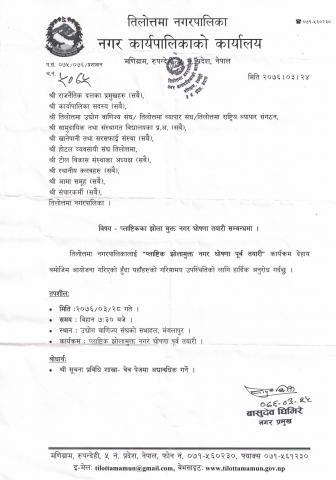 तिलोत्तमा नगरपालिका
नगर कार्यपालिकाको कार्यालय
☎ ०७१-५६०२३०
मणिग्राम, रुपन्देही, ५ नं. प्रदेश, नेपाल
प.सं. ०७५/०७६/प्रशासन
च.नं.
मिति २०७६।०३।२४
श्री राजनैतिक दलका प्रमुखहरु (सबै),
श्री कार्यपालिका सदस्य (सबै),
श्री तिलोत्तमा उद्योग बाणिज्य संघ/ तिलोत्तमा व्यापार संघ/तिलोत्तमा राष्ट्रिय व्यापार संगठन,
श्री सामुदायिक तथा संस्थागत विद्यालयका प्र.अ. (सबै),
श्री खानेपानी तथा सरसफाई संस्था (सबै),
श्री होटल व्यवसायी संघ तिलोत्तमा,
श्री टोल विकास संस्थाका अध्यक्ष (सबै),
श्री स्थानीय क्लबहरु (सबै),
श्री आमा समुह (सबै),
श्री संचारकर्मी (सबै),
तिलोत्तमा नगरपालिका ।
विषय - प्लाष्टिकका झोला मुक्त नगर घोषणा तयारी सम्बन्धमा ।
तिलोत्तमा नगरपालिकालाई "प्लाष्टिक झोलामुक्त नगर घोषणा पूर्व तयारी" कार्यक्रम देहाय
बमोजिम आयोजना गरिएको हुँदा यहाँहरुको गरिमामय उपस्थितिको लागि हार्दिक अनुरोध गर्दछु ।
तपशील:
• मिति :२०७६/०३/२८ गते ।
• समय : बिहान ७:३० बजे ।
• स्थान : उद्योग बाणिज्य संघको सभाहल, मंगलापुर ।
• कार्यक्रम : प्लाष्टिक झोलामुक्त नगर घोषणा पूर्व तयारी ।
बोधार्थ:
• श्री सूचना प्रविधि शाखा- वेब पेजमा अद्यावधिक गर्ने ।
०७६-०३-२४
बासुदेव घिमिरे
नगर प्रमुख
मणिग्राम, रुपन्देही, ५ नं. प्रदेश, नेपाल, फोन नं. ०७१-५६०२३०, फ्याक्स ०७१-५६१२३०
इ-मेल: tilottamamun@gmail.com, वेबसाइट: www.tilottamamun.gov.np